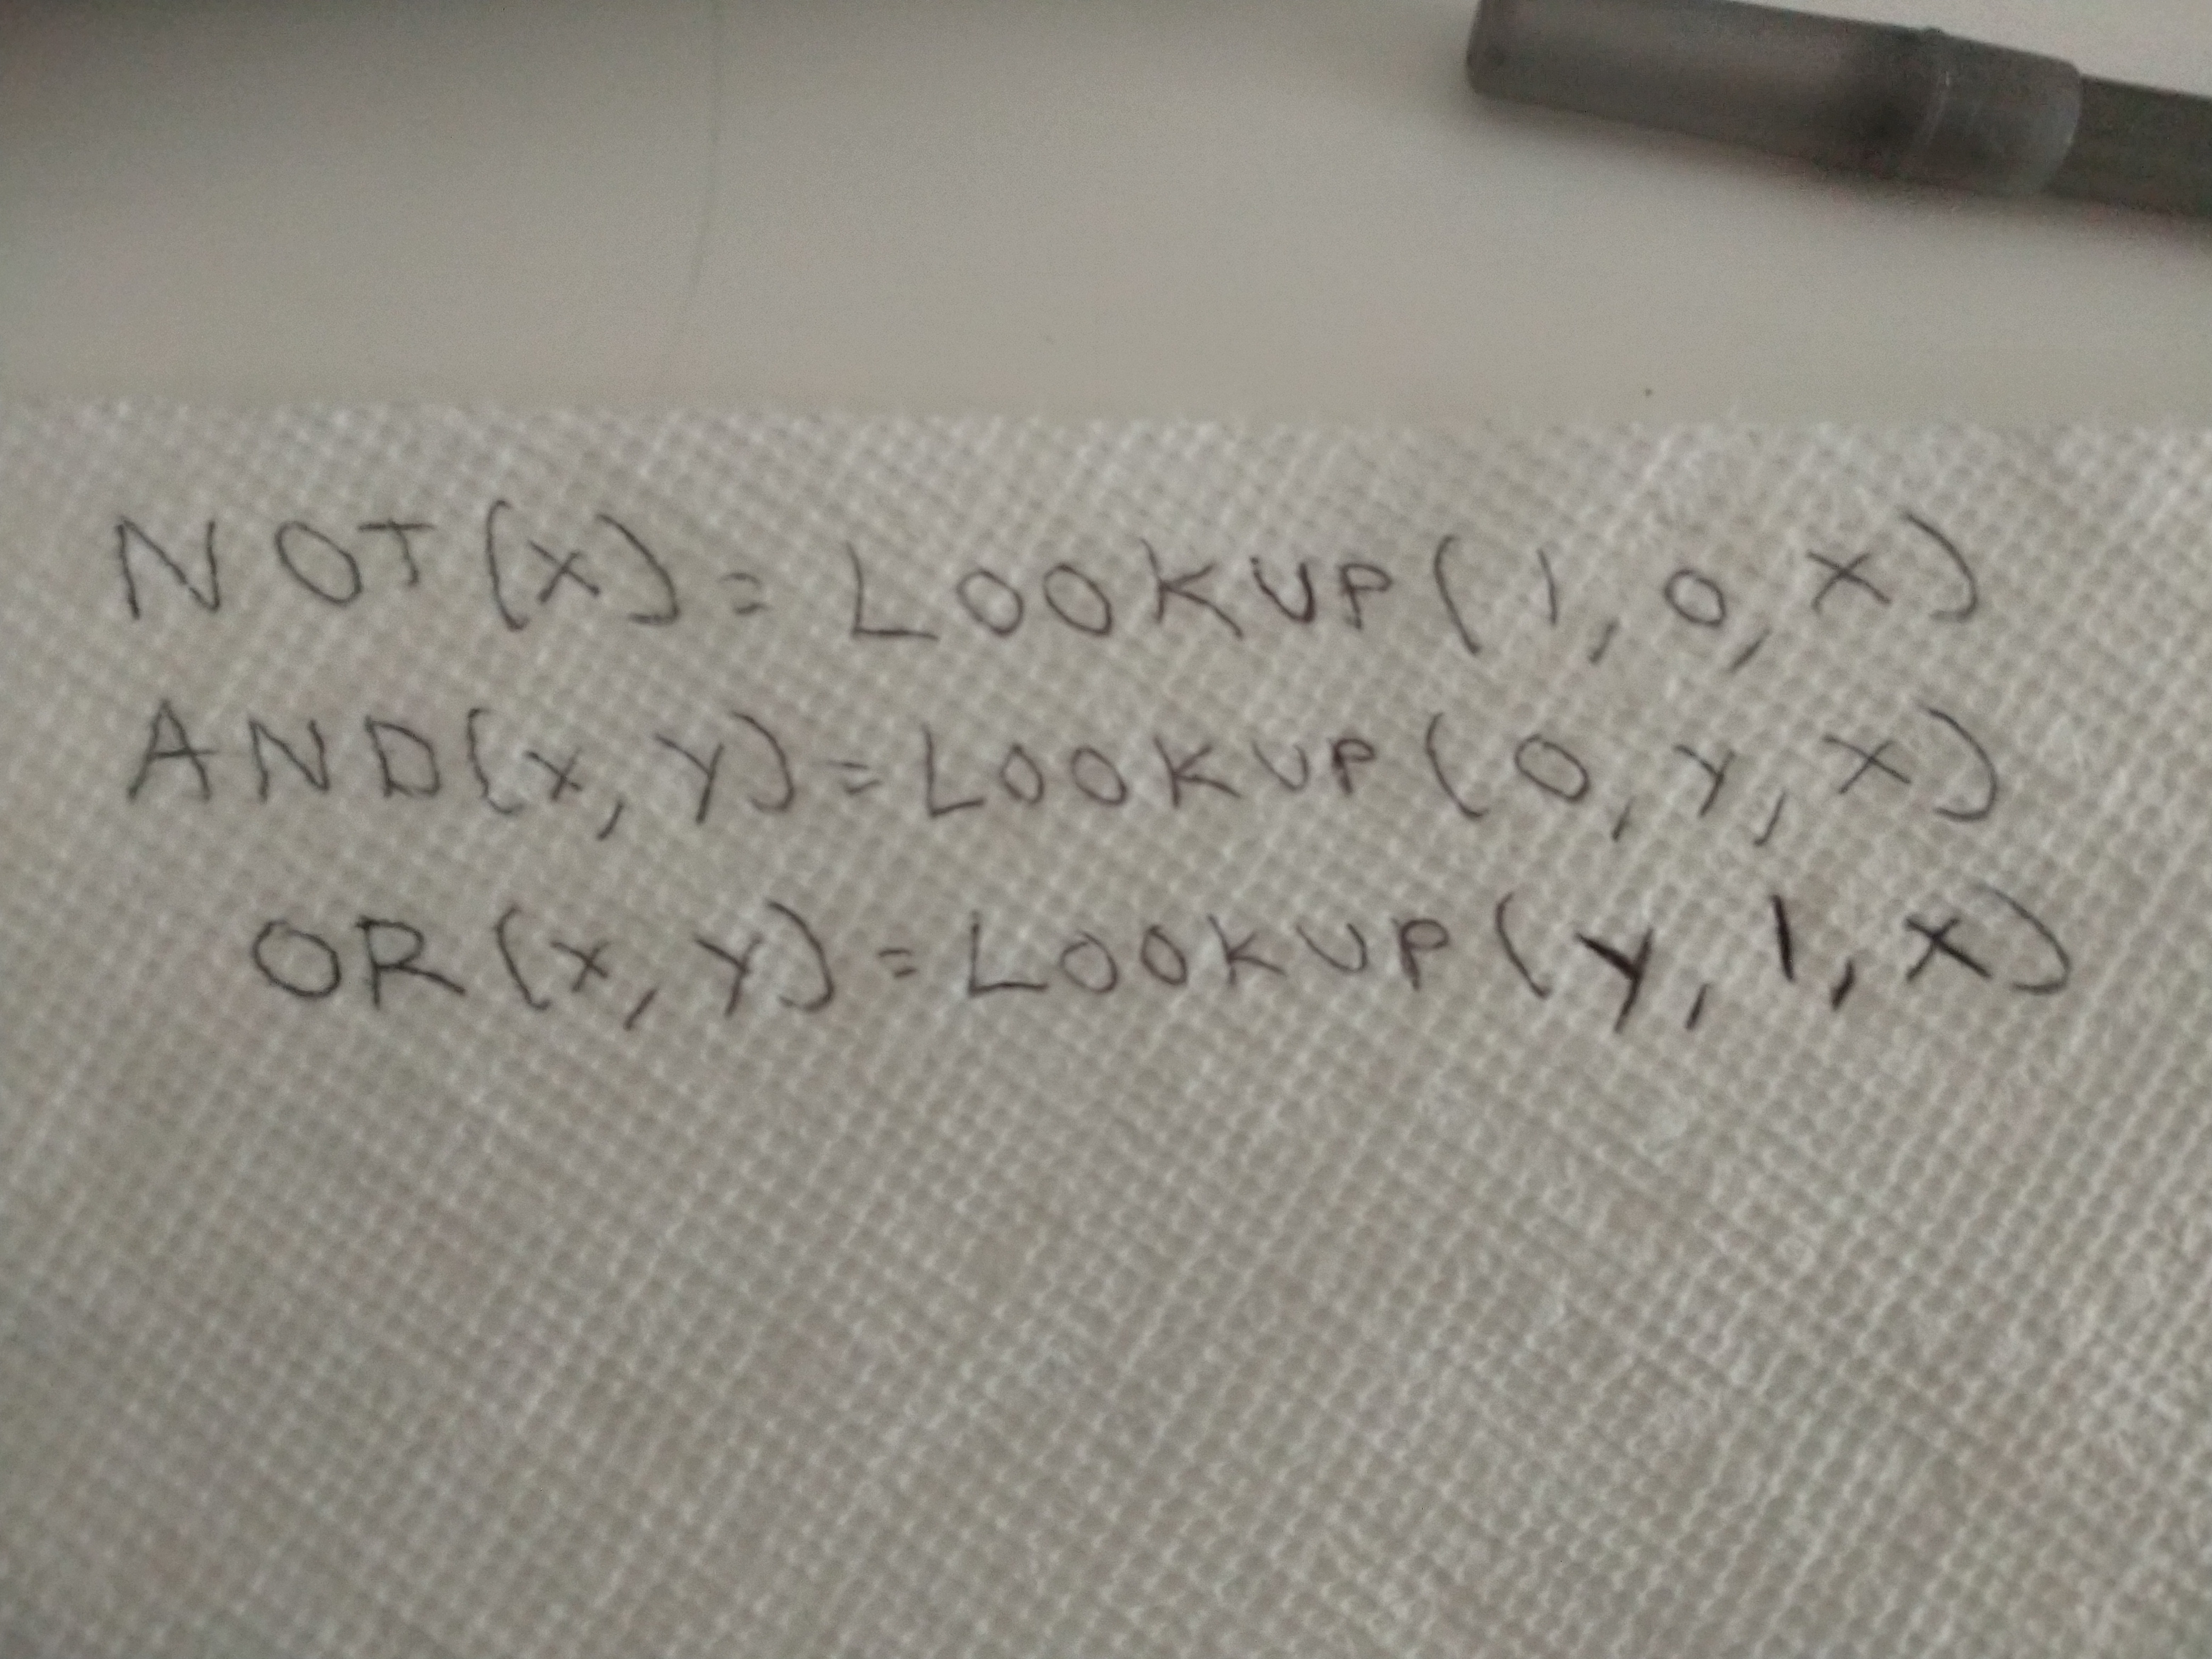 NOT(X)= LOOKUP(1,0,X)
AND(X,Y)=LOOKUP(0,Y,X)
OR(X,Y)=LOOKUP(Y,1,X)